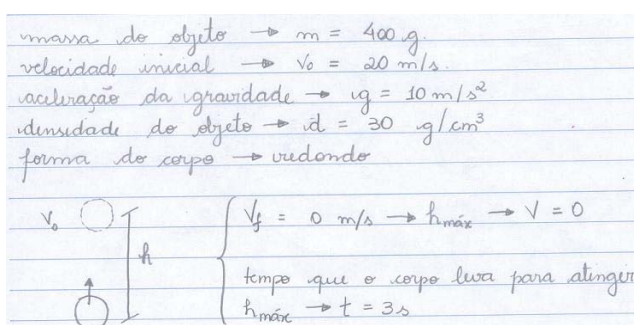 massa do objeto → m = 400 g.
velocidade inicial → V₀ = 20 m/s.
aceleração da gravidade → g = 10 m/s²
densidade do objeto → d = 30 g/cm³
forma do corpo → redondo
V₀
h
Vf = 0 m/s → hmáx → V = 0
tempo que o corpo leva para atinger
hmáx → t = 3s